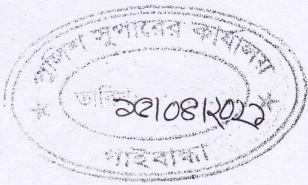 পুলিশ সুপারের কার্যালয়
তারিখ
১৫/০৪/২০২১
গাইবান্ধা